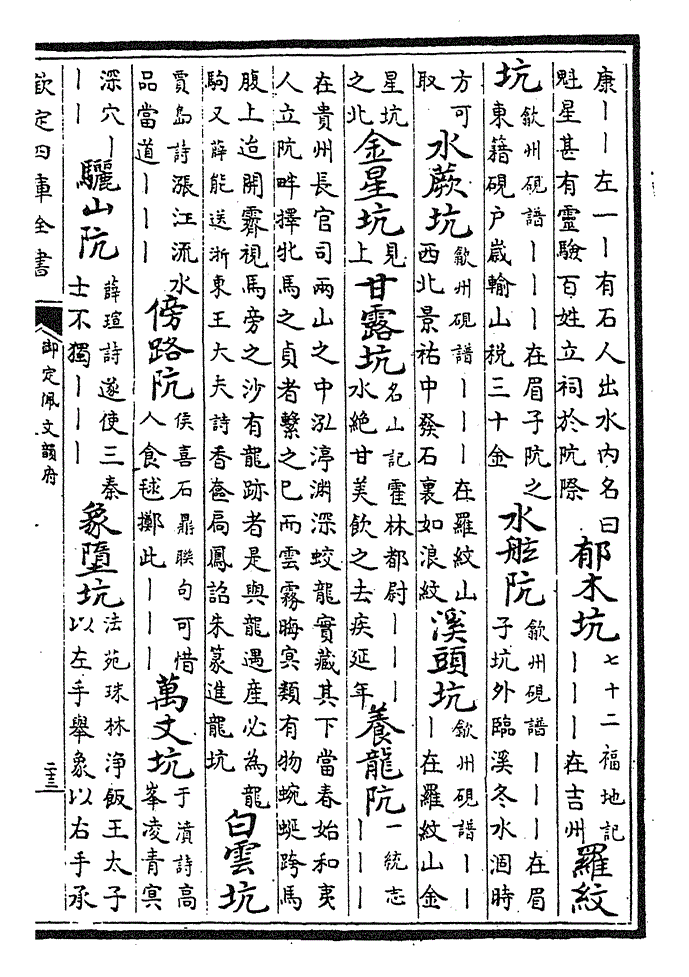 康丨丨左一丨有石人出水内名曰魁星甚有靈驗百姓立祠於阬際郁木坑七十二福地記丨丨丨在吉州羅紋
坑歙州硯譜丨丨丨在眉子阬之東籍硯户嵗輸山税三十金水舷阬歙州硯譜丨丨丨在眉子坑外臨溪冬水涸時
方可取水蕨坑歙州硯譜丨丨丨在羅紋山西北景祐中發石裏如浪紋溪頭坑歙州硯譜丨丨丨在羅紋山金
星坑之北金星坑見上甘露坑名山記霍林都尉丨丨丨水絶甘美飲之去疾延年養龍阬一統志丨丨丨
在貴州長官司兩山之中泓渟淵深蛟龍實藏其下當春始和夷人立阬畔擇牝馬之貞者繫之已而雲霧晦冥類有物蜿蜒跨馬
腹上迨開霽視馬旁之沙有龍跡者是與龍遇產必為龍駒又薛能送浙東王大夫詩香奩扃鳳詔朱篆進龍坑白雲坑
賈島詩漲江流水品當道丨丨丨傍路阬侯喜石鼎聯句可惜人食毬擲此丨丨丨萬丈坑于濆詩高峯凌青冥
深穴丨丨丨驪山阬薛瑄詩遂使三秦士不獨丨丨丨象墮坑法苑珠林淨飯王太子以左手舉象以右手承
欽定四庫全書
御定佩文韻府
二十三